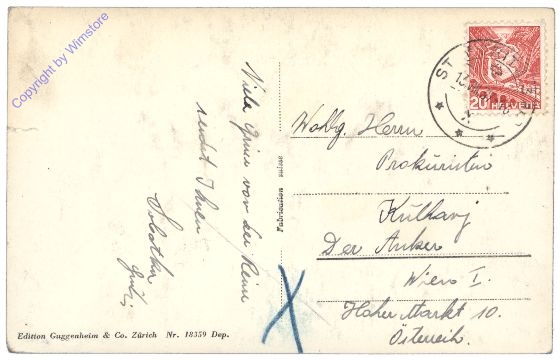 Copyright by Wimstore
Viele Grüsse von der Reise
sendet Ihnen
Fabrication suisse
20 HELVETIA
ST. MORITZ
Wohlg. Herrn
Prokuristen
Kulhavj
Der Anker
Wien I.
Hoher Markt 10.
Österreich.
Edition Guggenheim & Co. Zürich Nr. 18359 Dep.